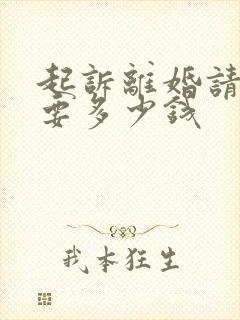 起訴離婚請
要多少錢
我本狂生